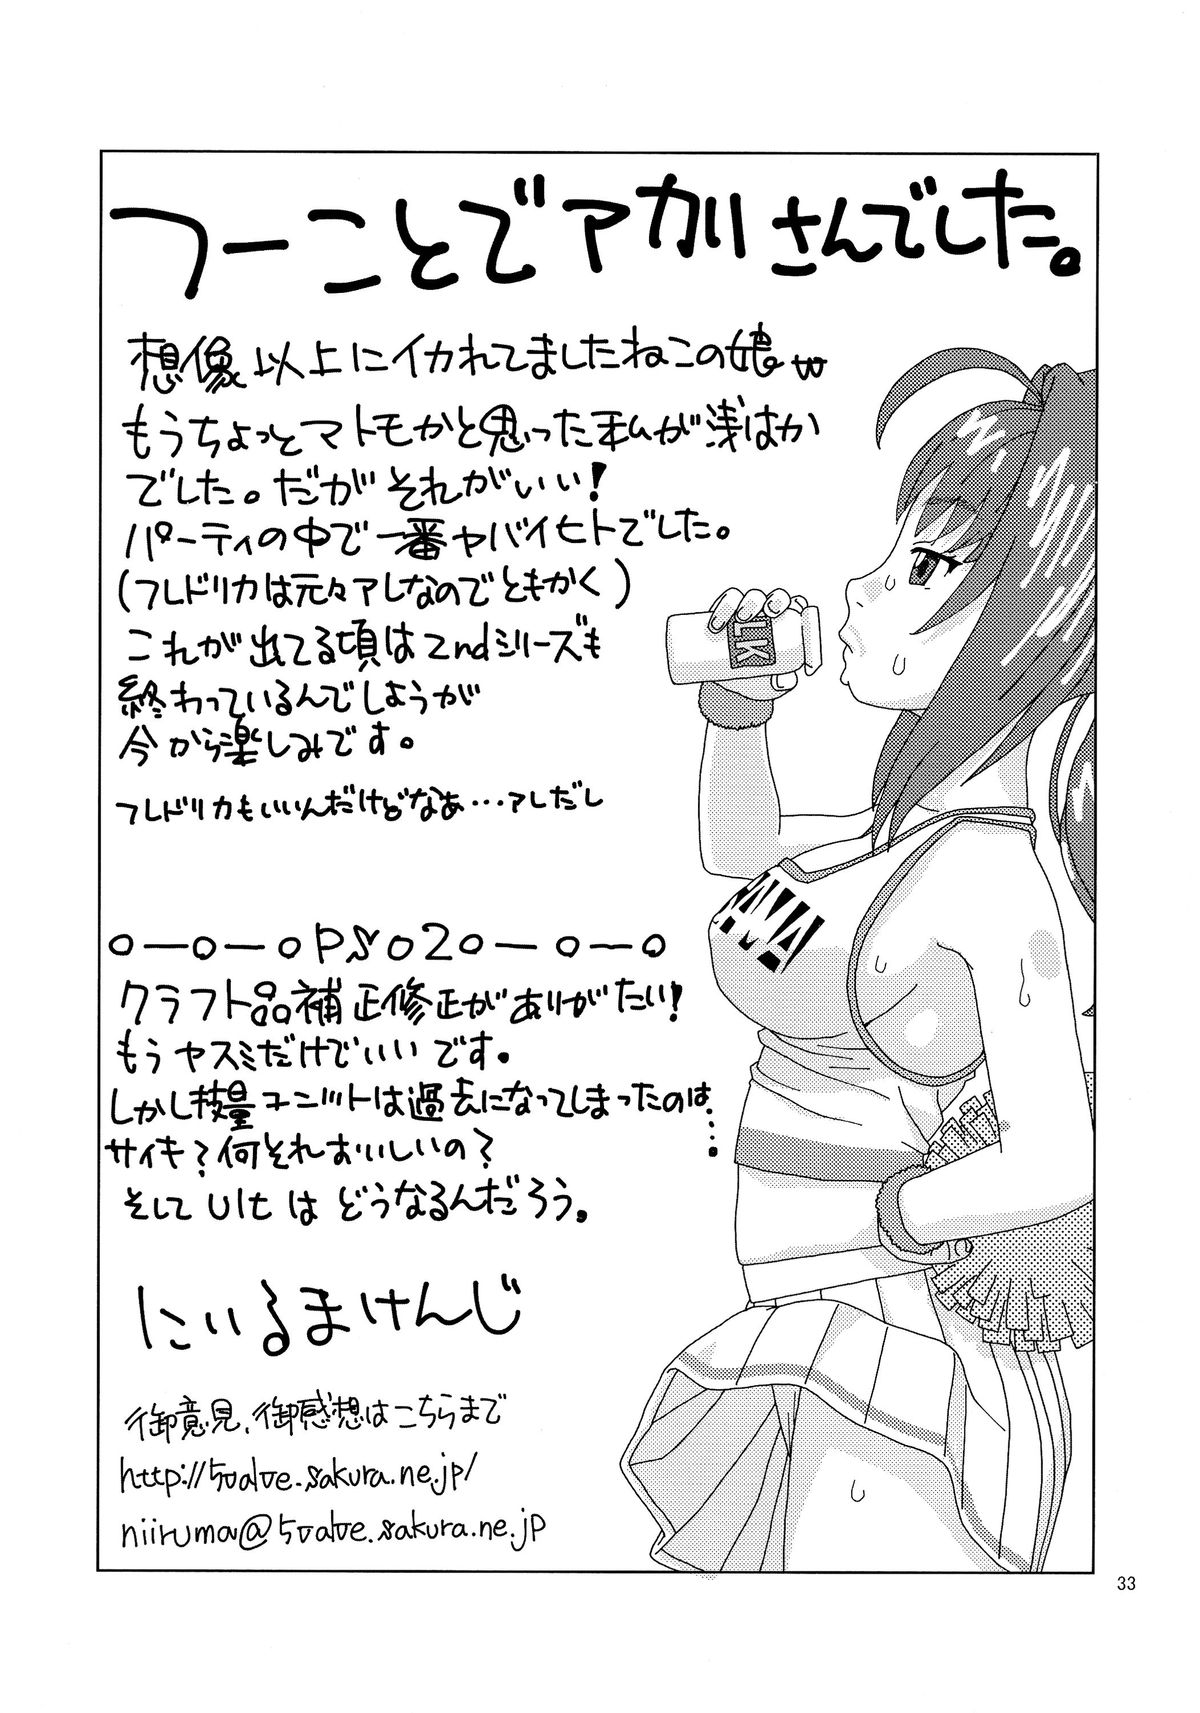 つーことでアカリさんでした。
想像以上にイカれてましたねこの娘w
もうちょっとマトモかと思った私が浅はか
でした。だがそれがいい!
パーティの中で一番ヤバイヒトでした。
(フレドリカは元々アレなのでともかく)
これが出てる頃は2ndシリーズも
終わっているんでしょうが
今から楽しみです。
フレドリカもいいんだけどなぁ…アレだし
o—o—oPSO2o—o—o
クラフト品補正修正がありがたい!
もうヤスミだけでいいです。
しかし技量ユニットは過去になってしまったのは…。
サイキ?何それおいしいの?
そしてUltはどうなるんだろう。
にいるまけんじ
御意見、御感想はこちらまで
http://5valve.sakura.ne.jp/
niiruma@5valve.sakura.ne.jp
LK
33